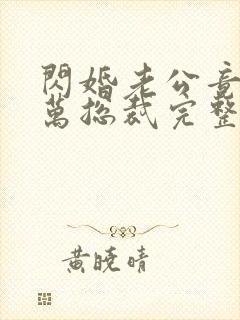 閃婚老公竟
萬總裁完整
黃曉晴